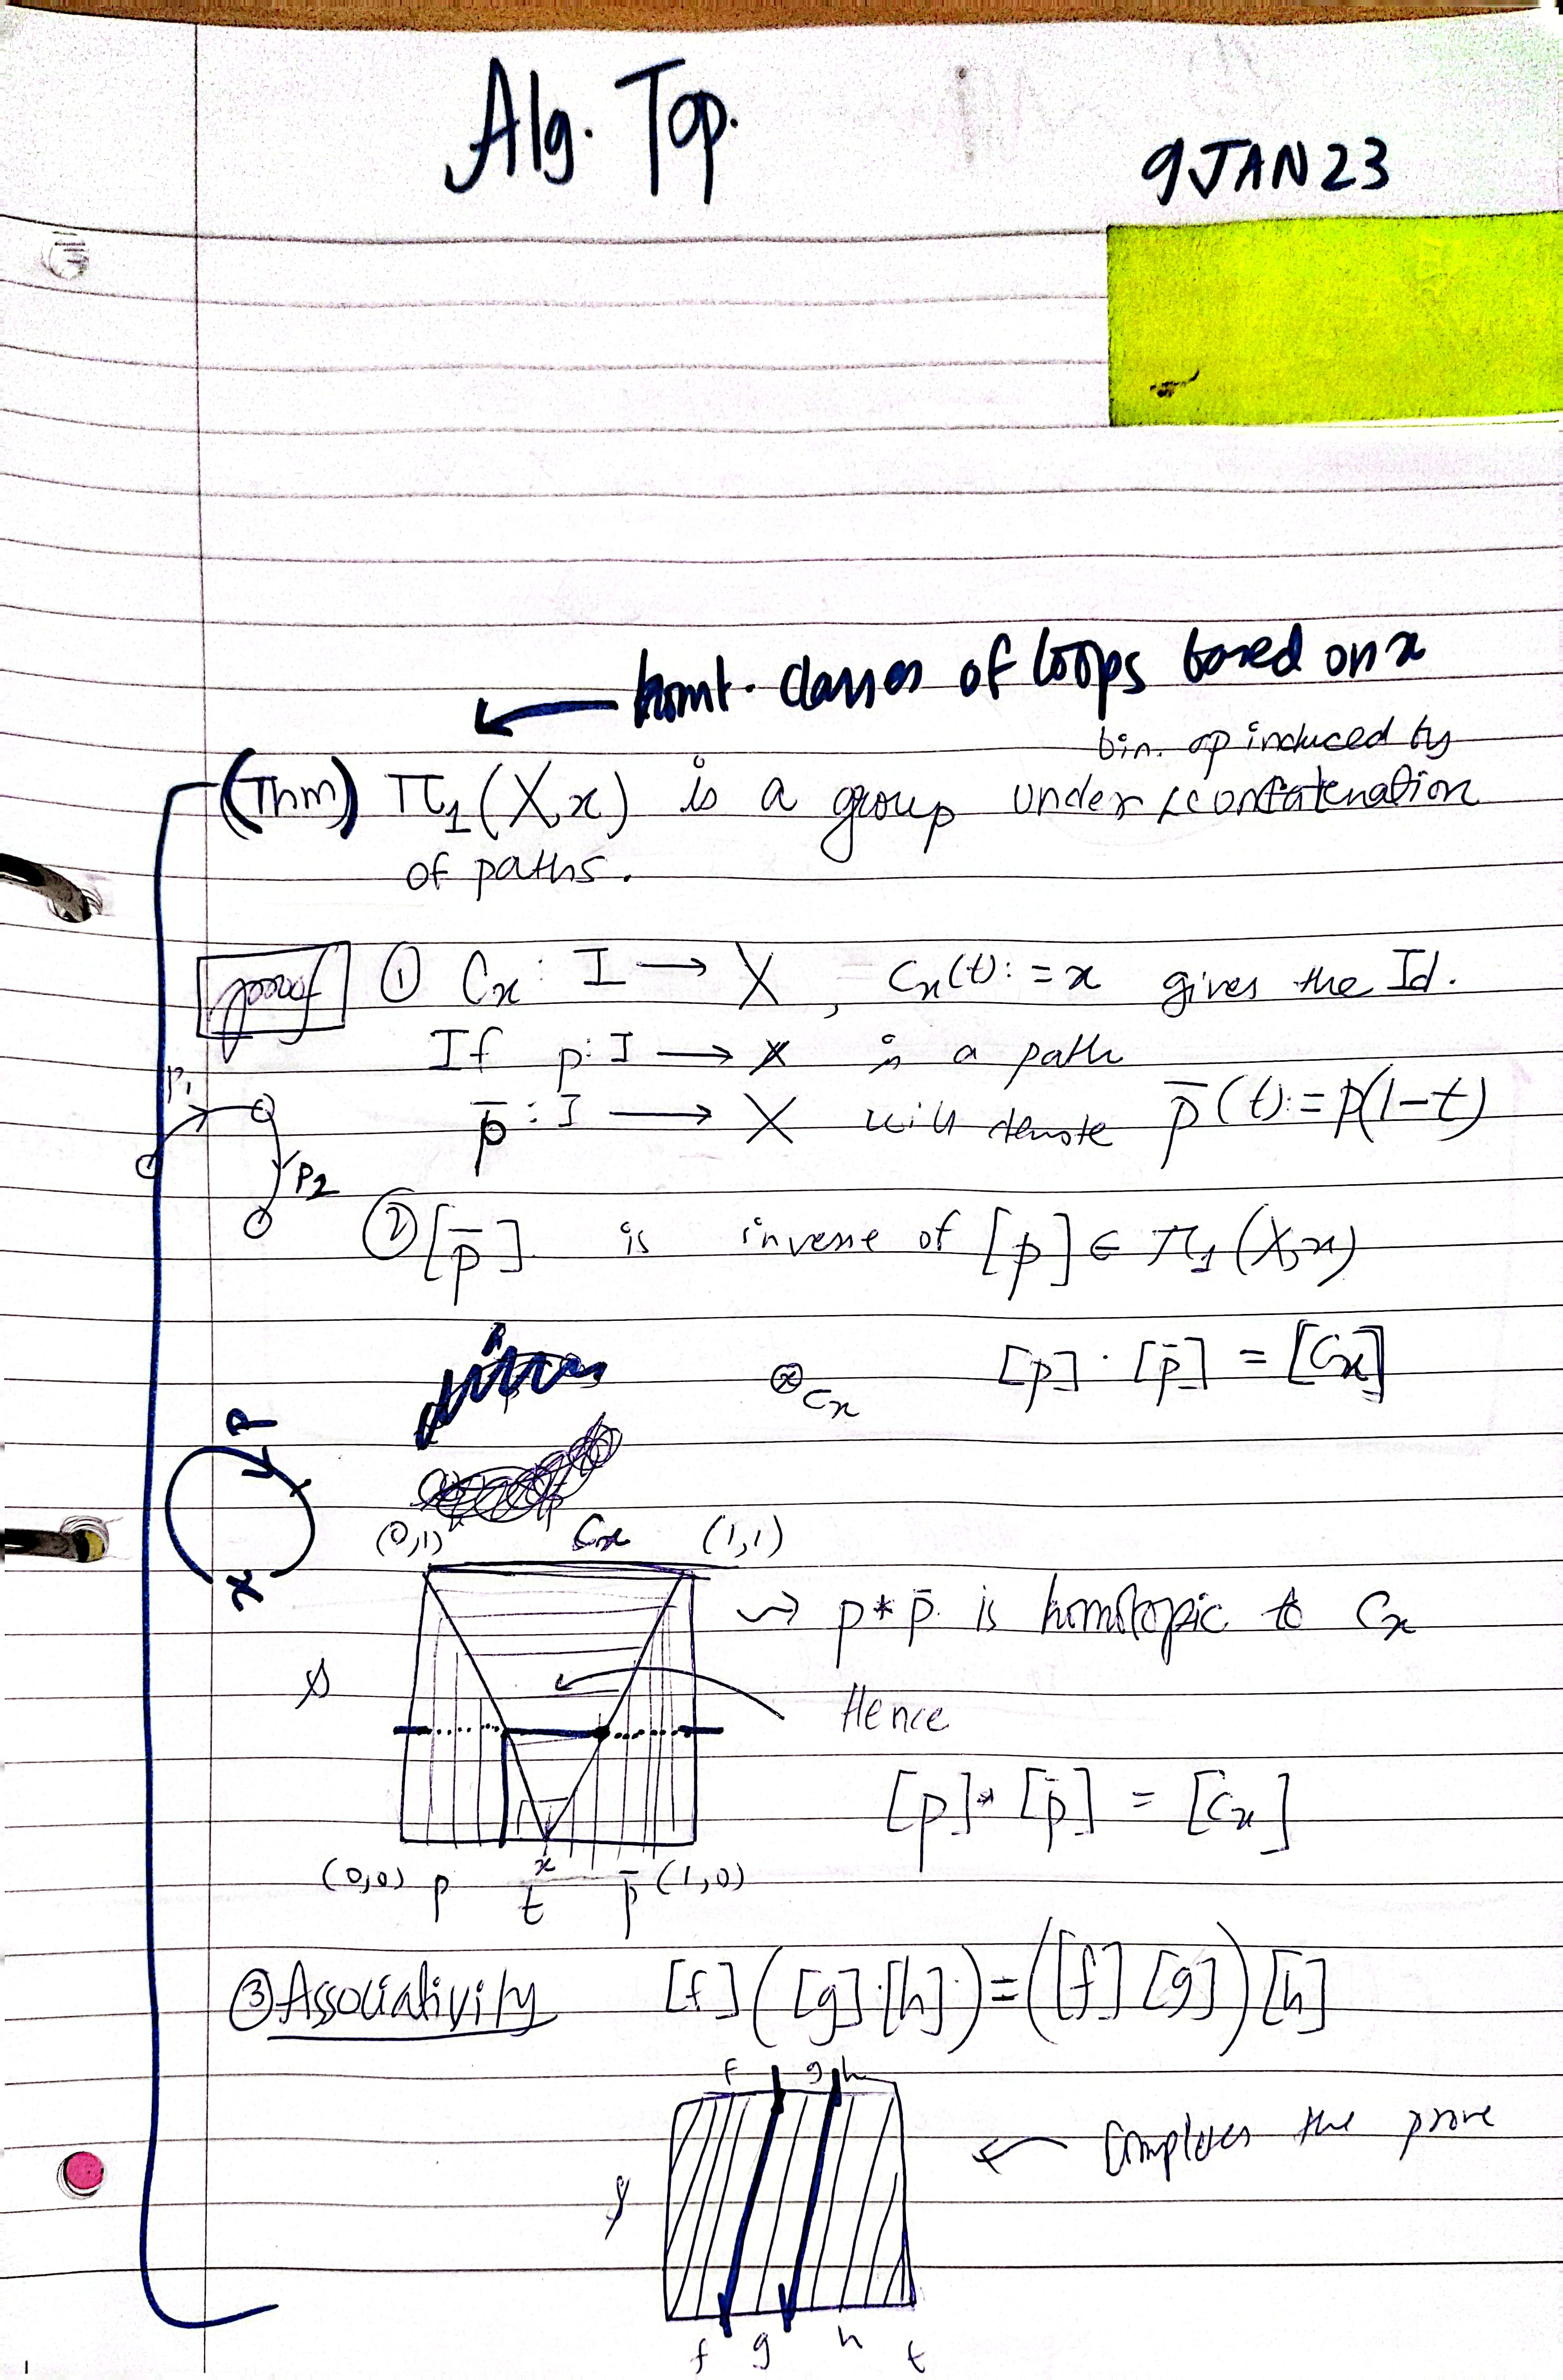 Alg. Top.
9JAN23
homt. classes of loops based on x
bin. op induced by
(Thm) π₁(X,x) is a group under concatenation
of paths.
proof ① Cx : I → X , Cx(t) := x gives the Id.
If p: I → X is a path
p̄ : I → X will denote p̄(t) := p(1-t)
p₁
p₂
② [p̄] is inverse of [p] ∈ π₁(X,x)
⊗ Cx [p] · [p̄] = [Cx]
p
x
(0,1) Cx (1,1)
⇝ p * p̄ is homotopic to Cx
s
Hence
[p] * [p̄] = [Cx]
(0,0) p x p̄ (1,0)
t
③ Associativity [f]([g]·[h]) = ([f][g])[h]
f g h
← Completes the prove
f g h t